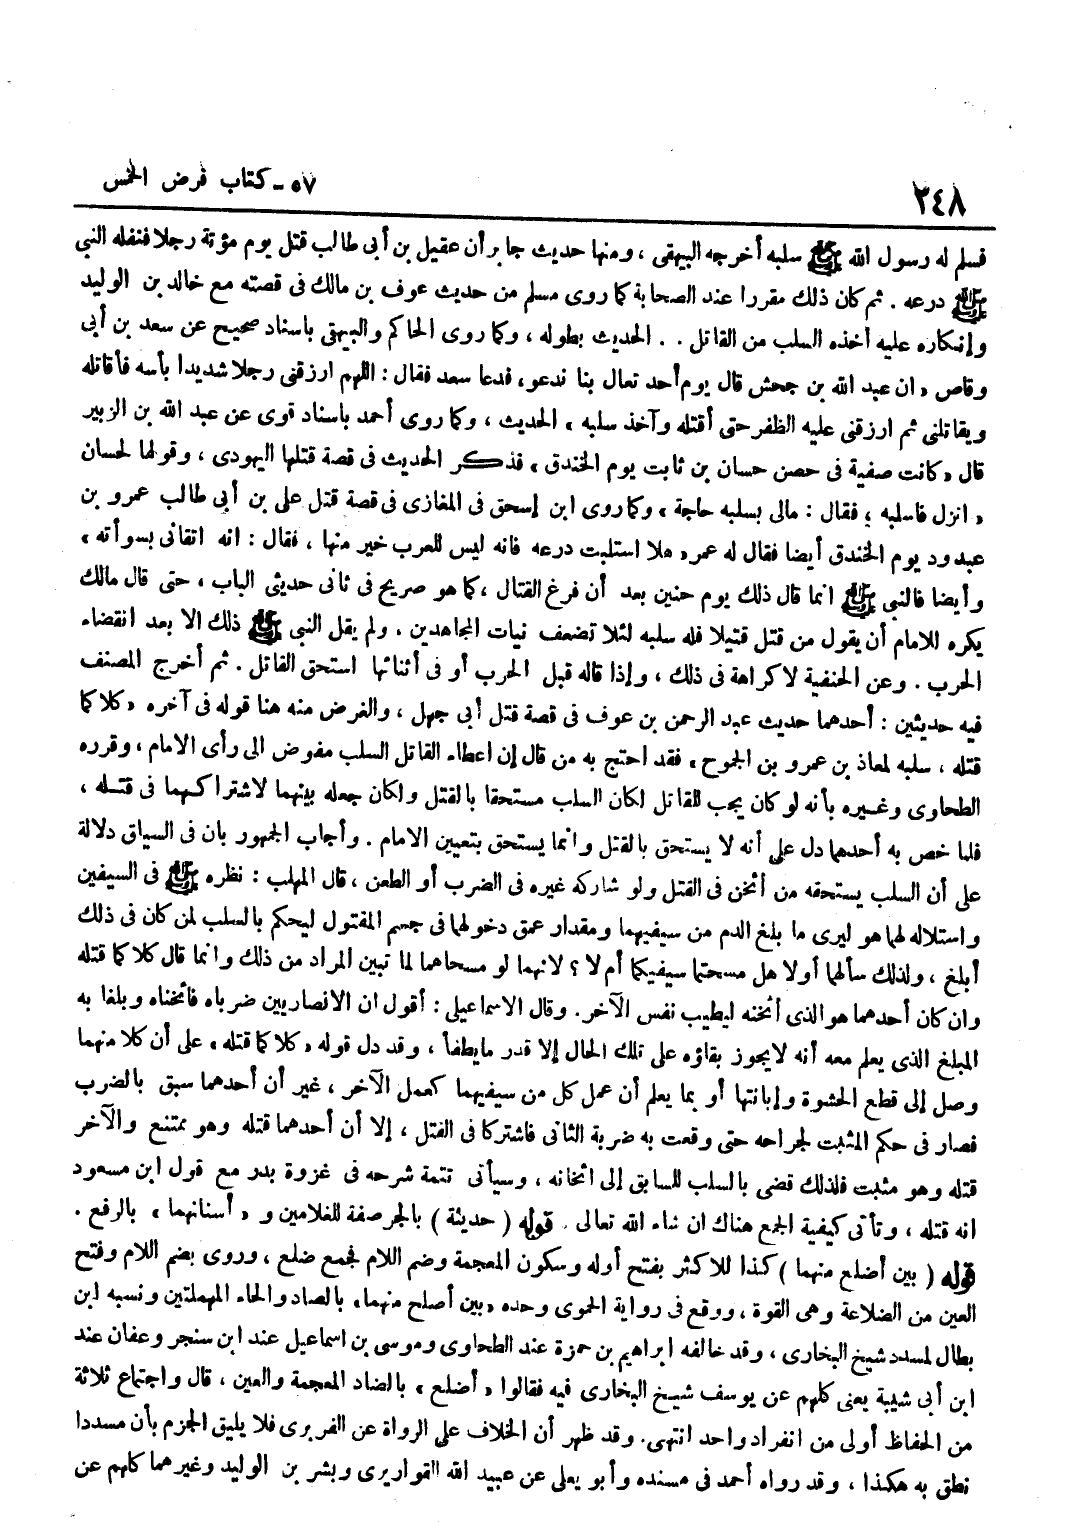 ٢٤٨
٥٧ - كتاب فرض الخمس
فسلم له رسول الله ﷺ سلبه أخرجه البيهقى ، ومنها حديث جابر أن عقيل بن أبى طالب قتل يوم مؤتة رجلا فنفله النبى
ﷺ درعه . ثم كان ذلك مقررا عند الصحابة كما روى مسلم من حديث عوف بن مالك فى قصته مع خالد بن الوليد
وإنكاره عليه أخذه السلب من القاتل . . الحديث بطوله ، وكما روى الحاكم والبيهقى باسناد صحيح عن سعد بن أبى
وقاص « ان عبد الله بن جحش قال يوم أحد تعال بنا ندعو ، فدعا سعد فقال : اللهم ارزقنى رجلا شديدا بأسه فأقاتله
ويقاتلنى ثم ارزقنى عليه الظفر حتى أقتله وآخذ سلبه » الحديث ، وكما روى أحمد باسناد قوى عن عبد الله بن الزبير
قال « كانت صفية فى حصن حسان بن ثابت يوم الخندق » فذكر الحديث فى قصة قتلها اليهودى ، وقولها لحسان
« انزل فاسلبه ، فقال : مالى بسلبه حاجة » وكما روى ابن إسحق فى المغازى فى قصة قتل على بن أبى طالب عمرو بن
عبدود يوم الخندق أيضا فقال له عمر « هلا استلبت درعه فانه ليس للعرب خير منها ، فقال : انه اتقانى بسوأته »
وأيضا فالنبى ﷺ انما قال ذلك يوم حنين بعد أن فرغ القتال ، كما هو صريح فى ثانى حديثى الباب ، حتى قال مالك
يكره للامام أن يقول من قتل قتيلا فله سلبه لئلا تضعف نيات المجاهدين . ولم يقل النبى ﷺ ذلك الا بعد انقضاء
الحرب . وعن الحنفية لا كراهة فى ذلك ، وإذا قاله قبل الحرب أو فى أثنائها استحق القاتل . ثم أخرج المصنف
فيه حديثين : أحدهما حديث عبد الرحمن بن عوف فى قصة قتل أبى جهل ، والغرض منه هنا قوله فى آخره « كلا كما
قتله ، سلبه لمعاذ بن عمرو بن الجموح » فقد احتج به من قال إن اعطاء القاتل السلب مفوض الى رأى الامام ، وقرره
الطحاوى وغيره بأنه لو كان يجب للقاتل لكان السلب مستحقا بالقتل ولكان جعله بينهما لاشتراكهما فى قتله ،
فلما خص به أحدهما دل على أنه لا يستحق بالقتل وانما يستحق بتعيين الامام . وأجاب الجمهور بان فى السياق دلالة
على أن السلب يستحقه من أثخن فى القتل ولو شاركه غيره فى الضرب أو الطعن ، قال المهلب : نظره ﷺ فى السيفين
واستلاله لهما هو ليرى ما بلغ الدم من سيفيهما ومقدار عمق دخولهما فى جسم المقتول ليحكم بالسلب لمن كان فى ذلك
أبلغ ، ولذلك سألهما أولا هل مسحتما سيفيكما أم لا ؟ لانهما لو مسحاهما لما تبين المراد من ذلك وانما قال كلا كما قتله
وان كان أحدهما هو الذى أثخنه ليطيب نفس الآخر . وقال الاسماعيلى : أقول ان الانصاريين ضرباه فاثخناه وبلغا به
المبلغ الذى يعلم معه أنه لا يجوز بقاؤه على تلك الحال إلا قدر ما يطفأ ، وقد دل قوله « كلا كما قتله » على أن كلا منهما
وصل إلى قطع الحشوة وإبانتها أو بما يعلم أن عمل كل من سيفيهما كعمل الآخر ، غير أن أحدهما سبق بالضرب
فصار فى حكم المثبت لجراحه حتى وقعت به ضربة الثانى فاشتركا فى القتل ، إلا أن أحدهما قتله وهو ممتنع والآخر
قتله وهو مثبت فلذلك قضى بالسلب للسابق إلى اثخانه ، وسيأتى تتمة شرحه فى غزوة بدر مع قول ابن مسعود
انه قتله ، وتأتى كيفية الجمع هناك ان شاء الله تعالى . قوله ( حديثة ) بالجر صفة للغلامين و « أسنانهما » بالرفع .
قوله ( بين أضلع منهما ) كذا للاكثر بفتح أوله وسكون المعجمة وضم اللام فجمع ضلع ، وروى بضم اللام وفتح
العين من الضلاعة وهى القوة ، ووقع فى رواية الحموى وحده « بين أصلح منهما » بالصاد والحاء المهملتين ونسبه ابن
بطال لمسدد شيخ البخارى ، وقد خالفه ابراهيم بن حمزة عند الطحاوى وموسى بن اسماعيل عند ابن سنجر وعفان عند
ابن أبى شيبة يعنى كلهم عن يوسف شيخ البخارى فيه فقالوا « أضلع » بالضاد المعجمة والعين ، قال واجتماع ثلاثة
من الحفاظ أولى من انفراد واحد انتهى . وقد ظهر أن الخلاف على الرواة عن الفربرى فلا يليق الجزم بأن مسددا
نطق به هكذا ، وقد رواه أحمد فى مسنده وأبو يعلى عن عبيد الله القواريرى وبشر بن الوليد وغيرهما كلهم عن